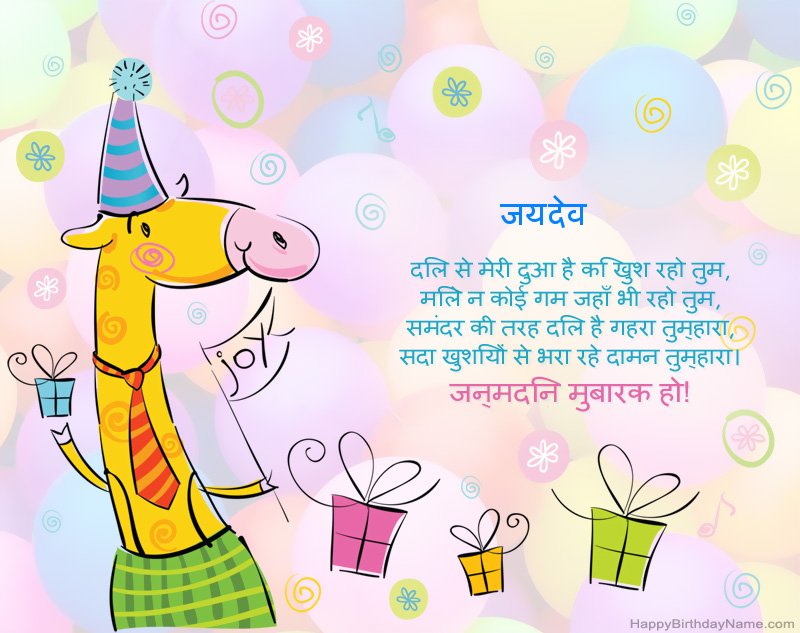 जयदेव
दलि से मेरी दुआ है कि खुश रहो तुम,
मलिे न कोई गम जहाँ भी रहो तुम,
समंदर की तरह दलि है गहरा तुम्हारा,
सदा खुशयिों से भरा रहे दामन तुम्हारा।
जन्मदनि मुबारक हो!
joy
HappyBirthdayName.com